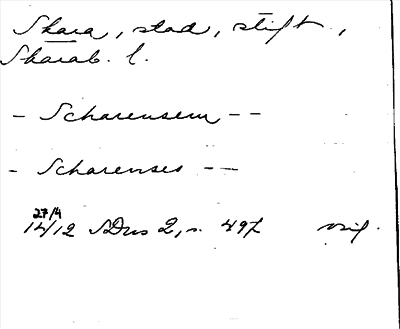 Skara, stad, stift,
Skarab. l.
- Scharensem --
- Scharenses --
27/4
14/12 SDns 2, s. 497 orig.